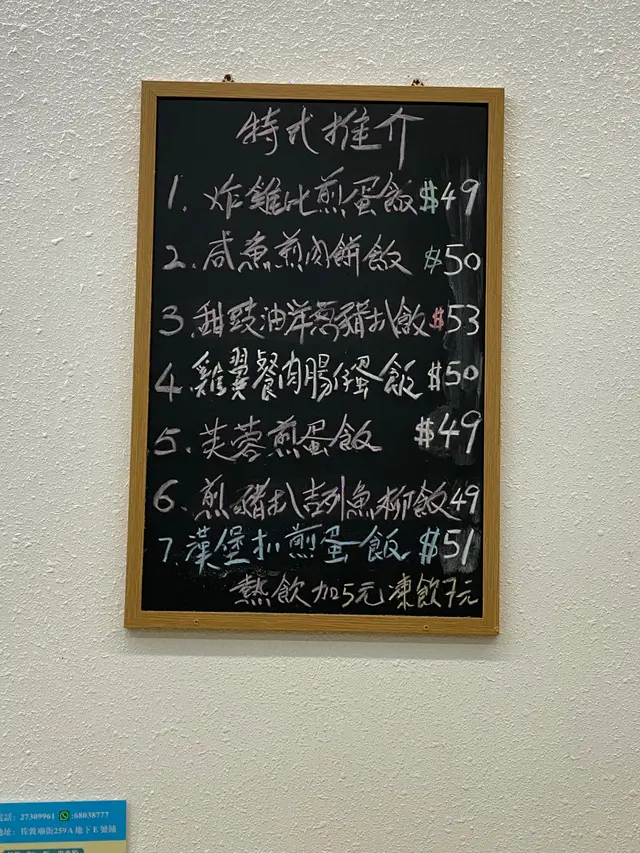 特式推介
1. 炸雞比煎蛋飯 $49
2. 咸魚煎肉餅飯 $50
3. 甜豉油洋葱豬扒飯 $53
4. 雞翼餐肉腸仔蛋飯 $50
5. 芙蓉煎蛋飯 $49
6. 煎豬扒吉列魚柳飯 49
7. 漢堡扒煎蛋飯 $51
熱飲加5元 凍飲7元
電話: 27309961 :68038777
地址: 佐敦廟街259A地下E號舖